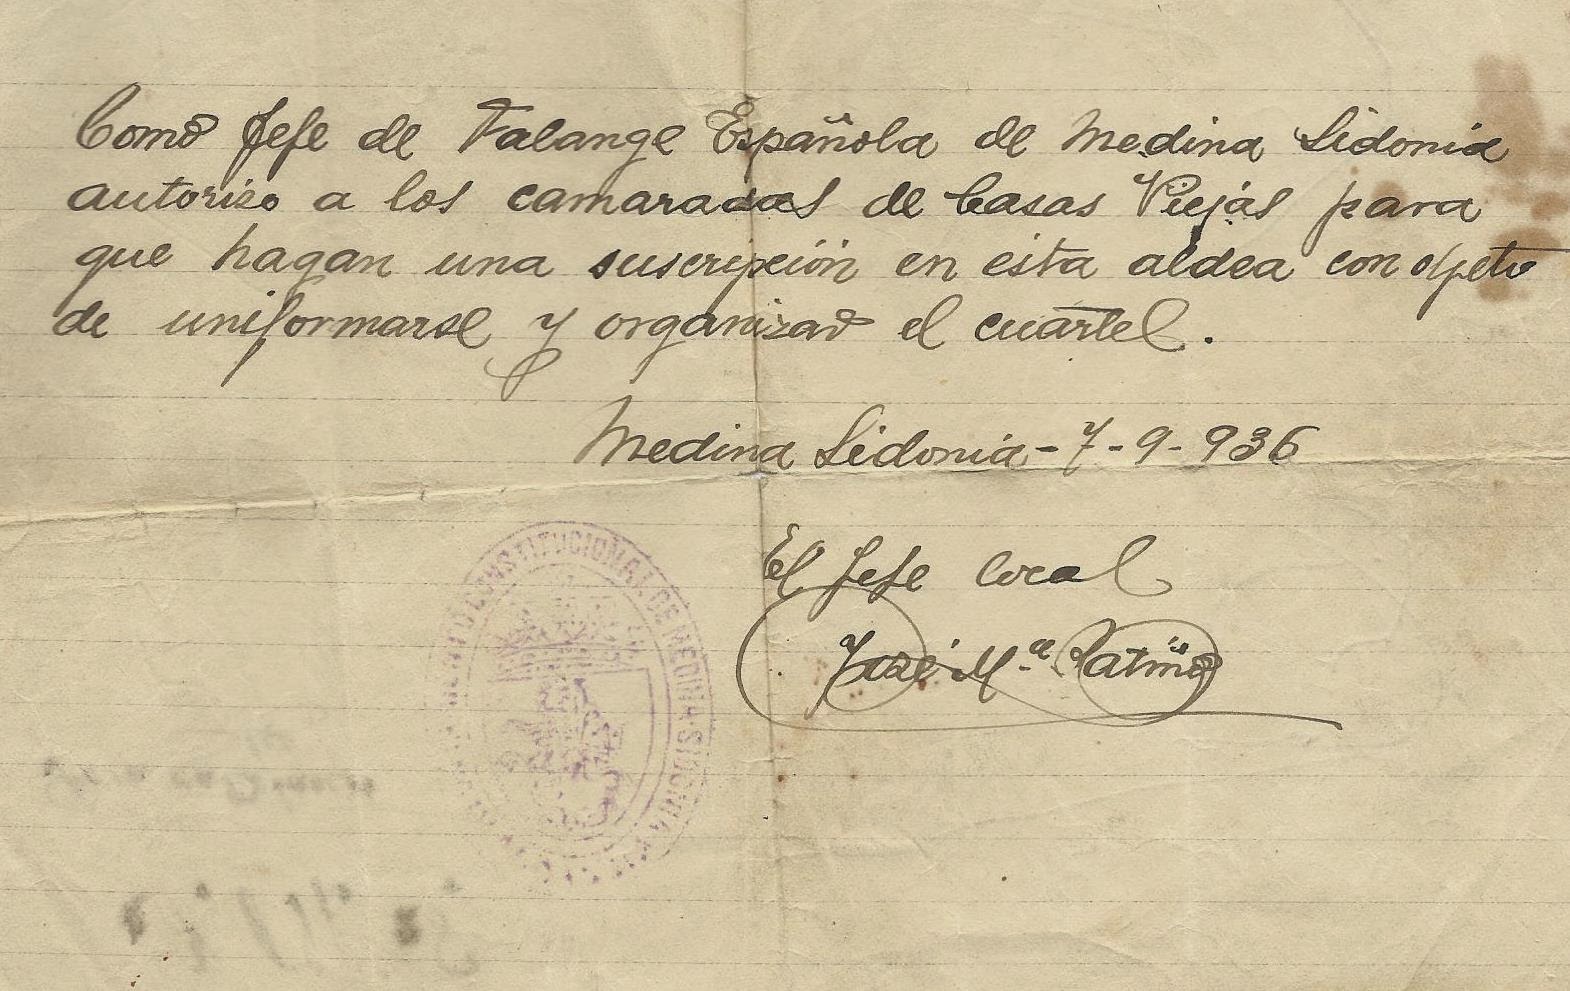 Como Jefe de Falange Española de Medina Sidonia
autorizo a los camaradas de Casas Viejas para
que hagan una suscripción en esta aldea con objeto
de uniformarse y organizar el cuartel.
Medina Sidonia - 7 - 9 - 936
El Jefe local
José Mª Patiño
CONSTITUCIONAL DE MEDINA-SIDONIA